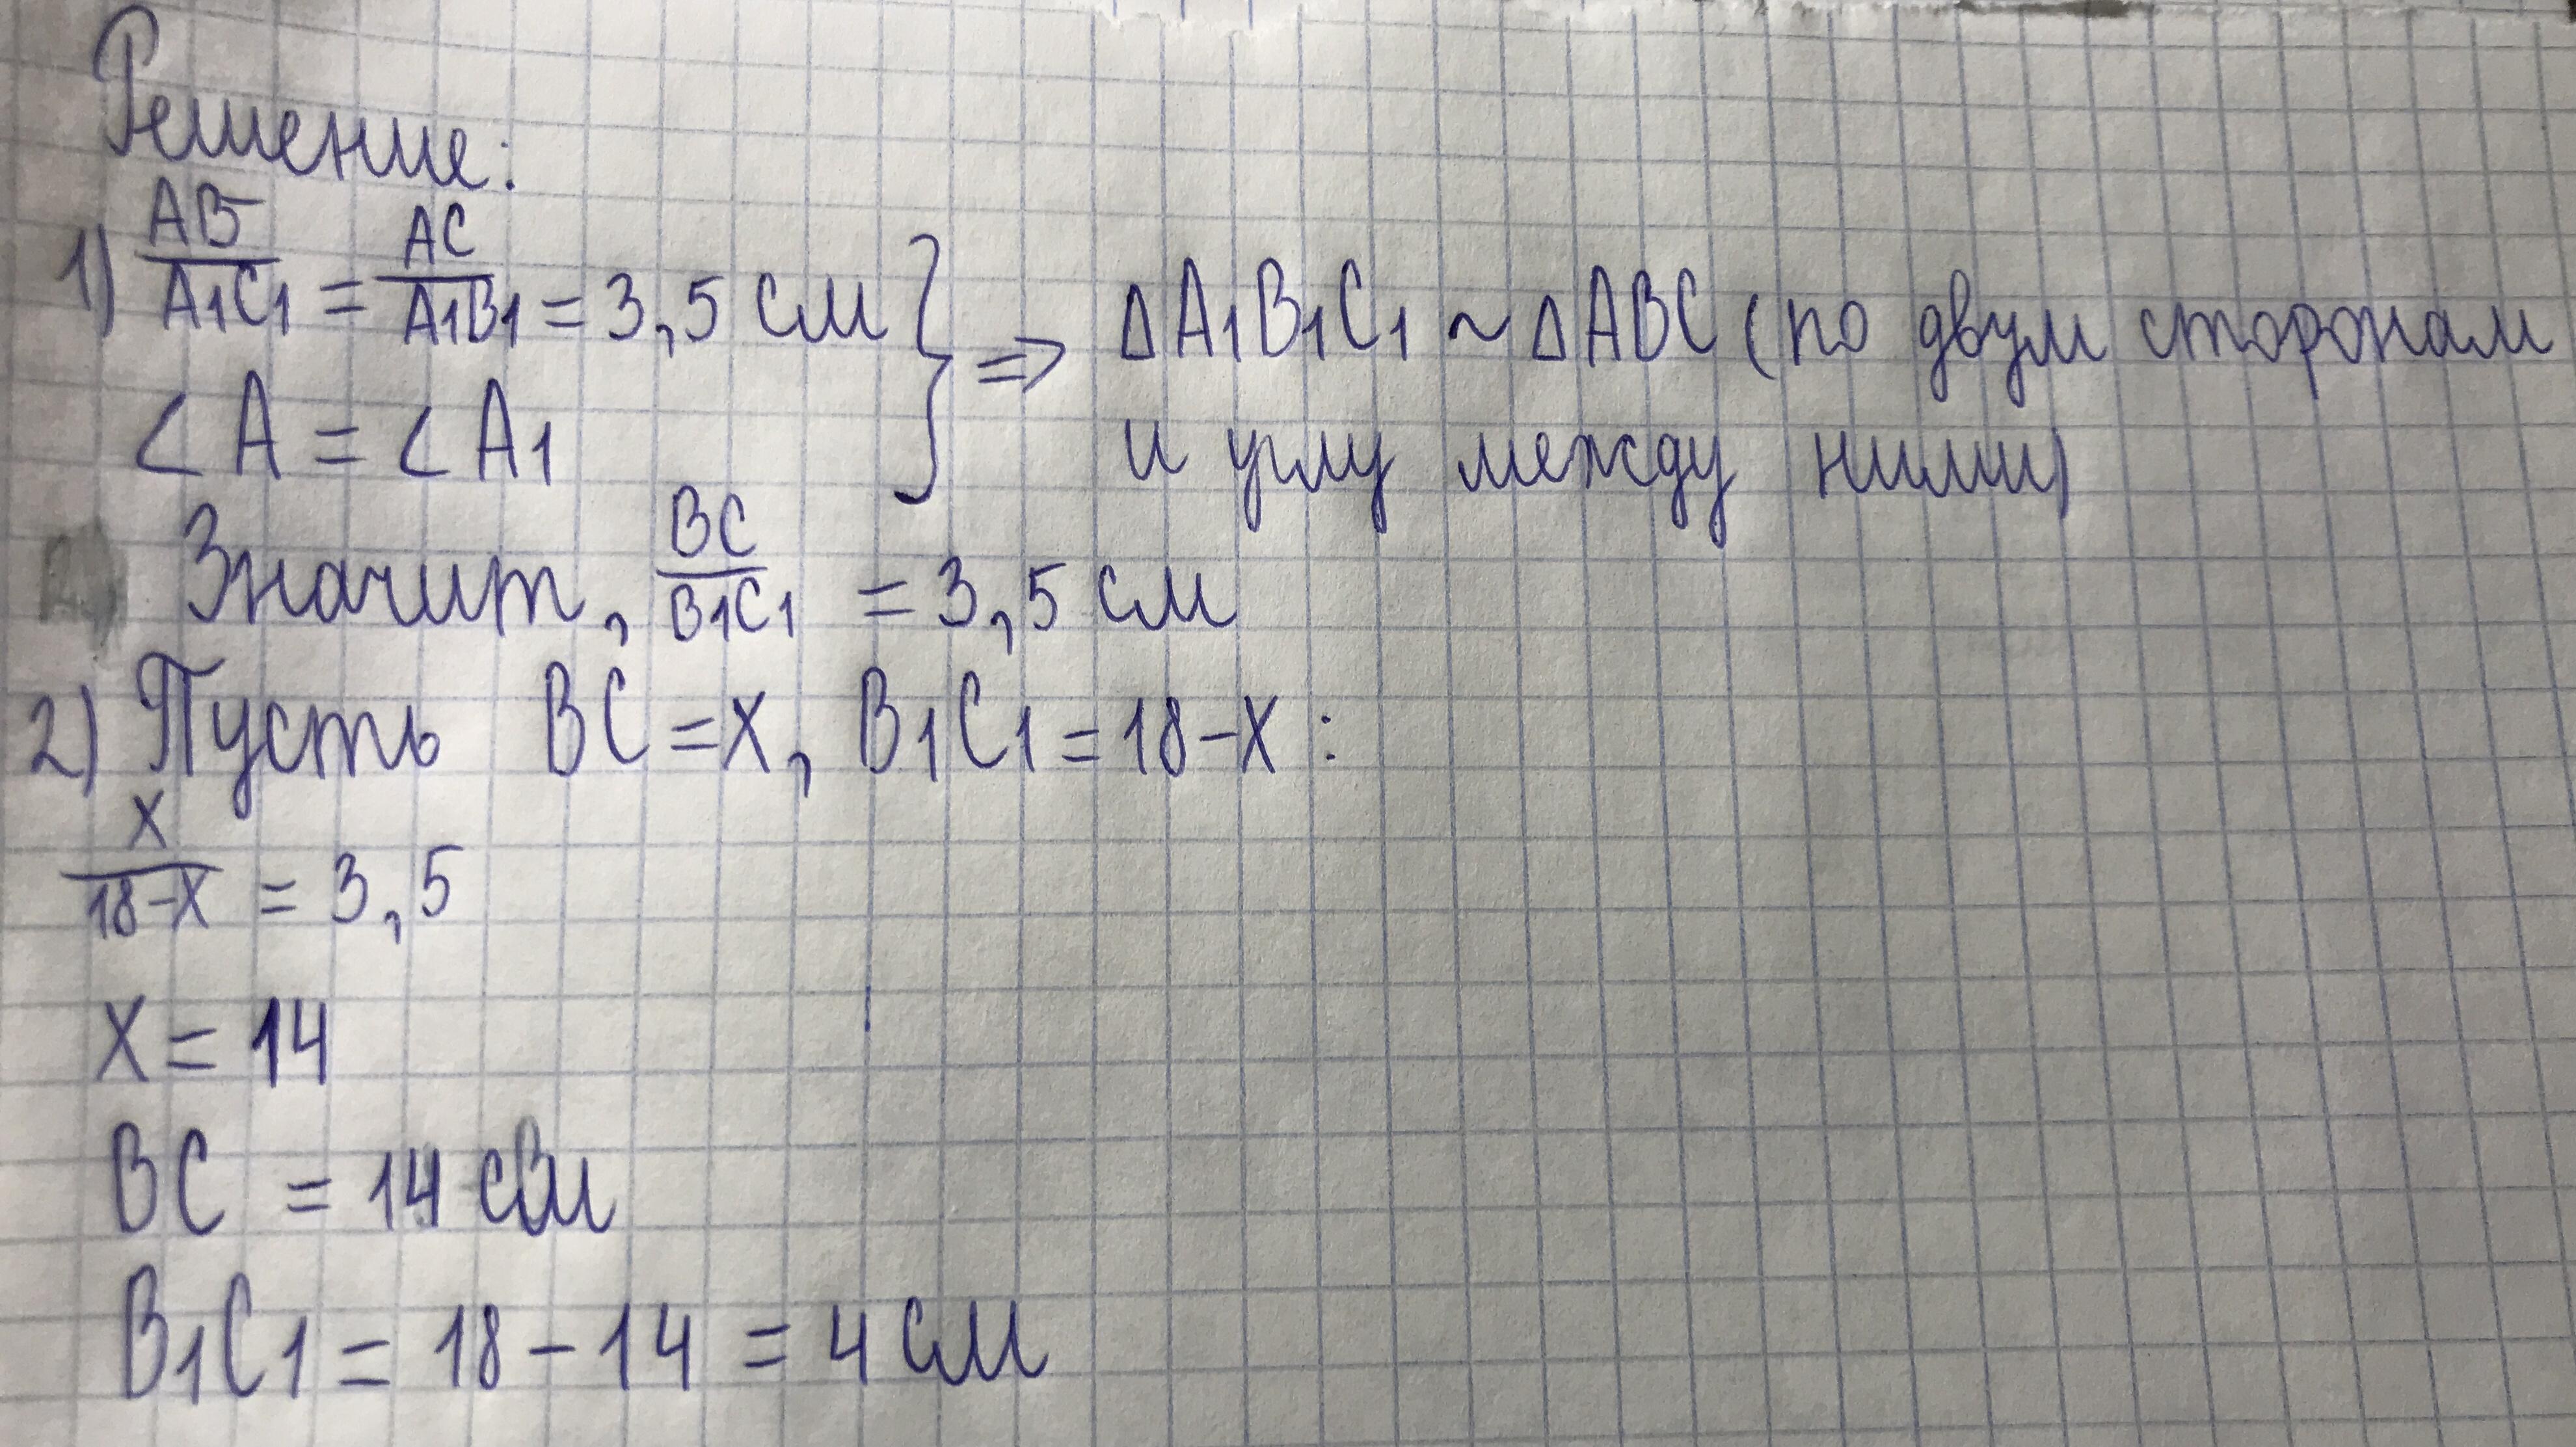 Решение:
1) AB/A1C1 = AC/A1B1 = 3,5 см } => ΔA1B1C1 ~ ΔABC (по двум сторонам
∠A = ∠A1 и углу между ними)
Значит, BC/B1C1 = 3,5 см
2) Пусть BC = x, B1C1 = 18-x :
x/18-x = 3,5
x = 14
BC = 14 см
B1C1 = 18 - 14 = 4 см